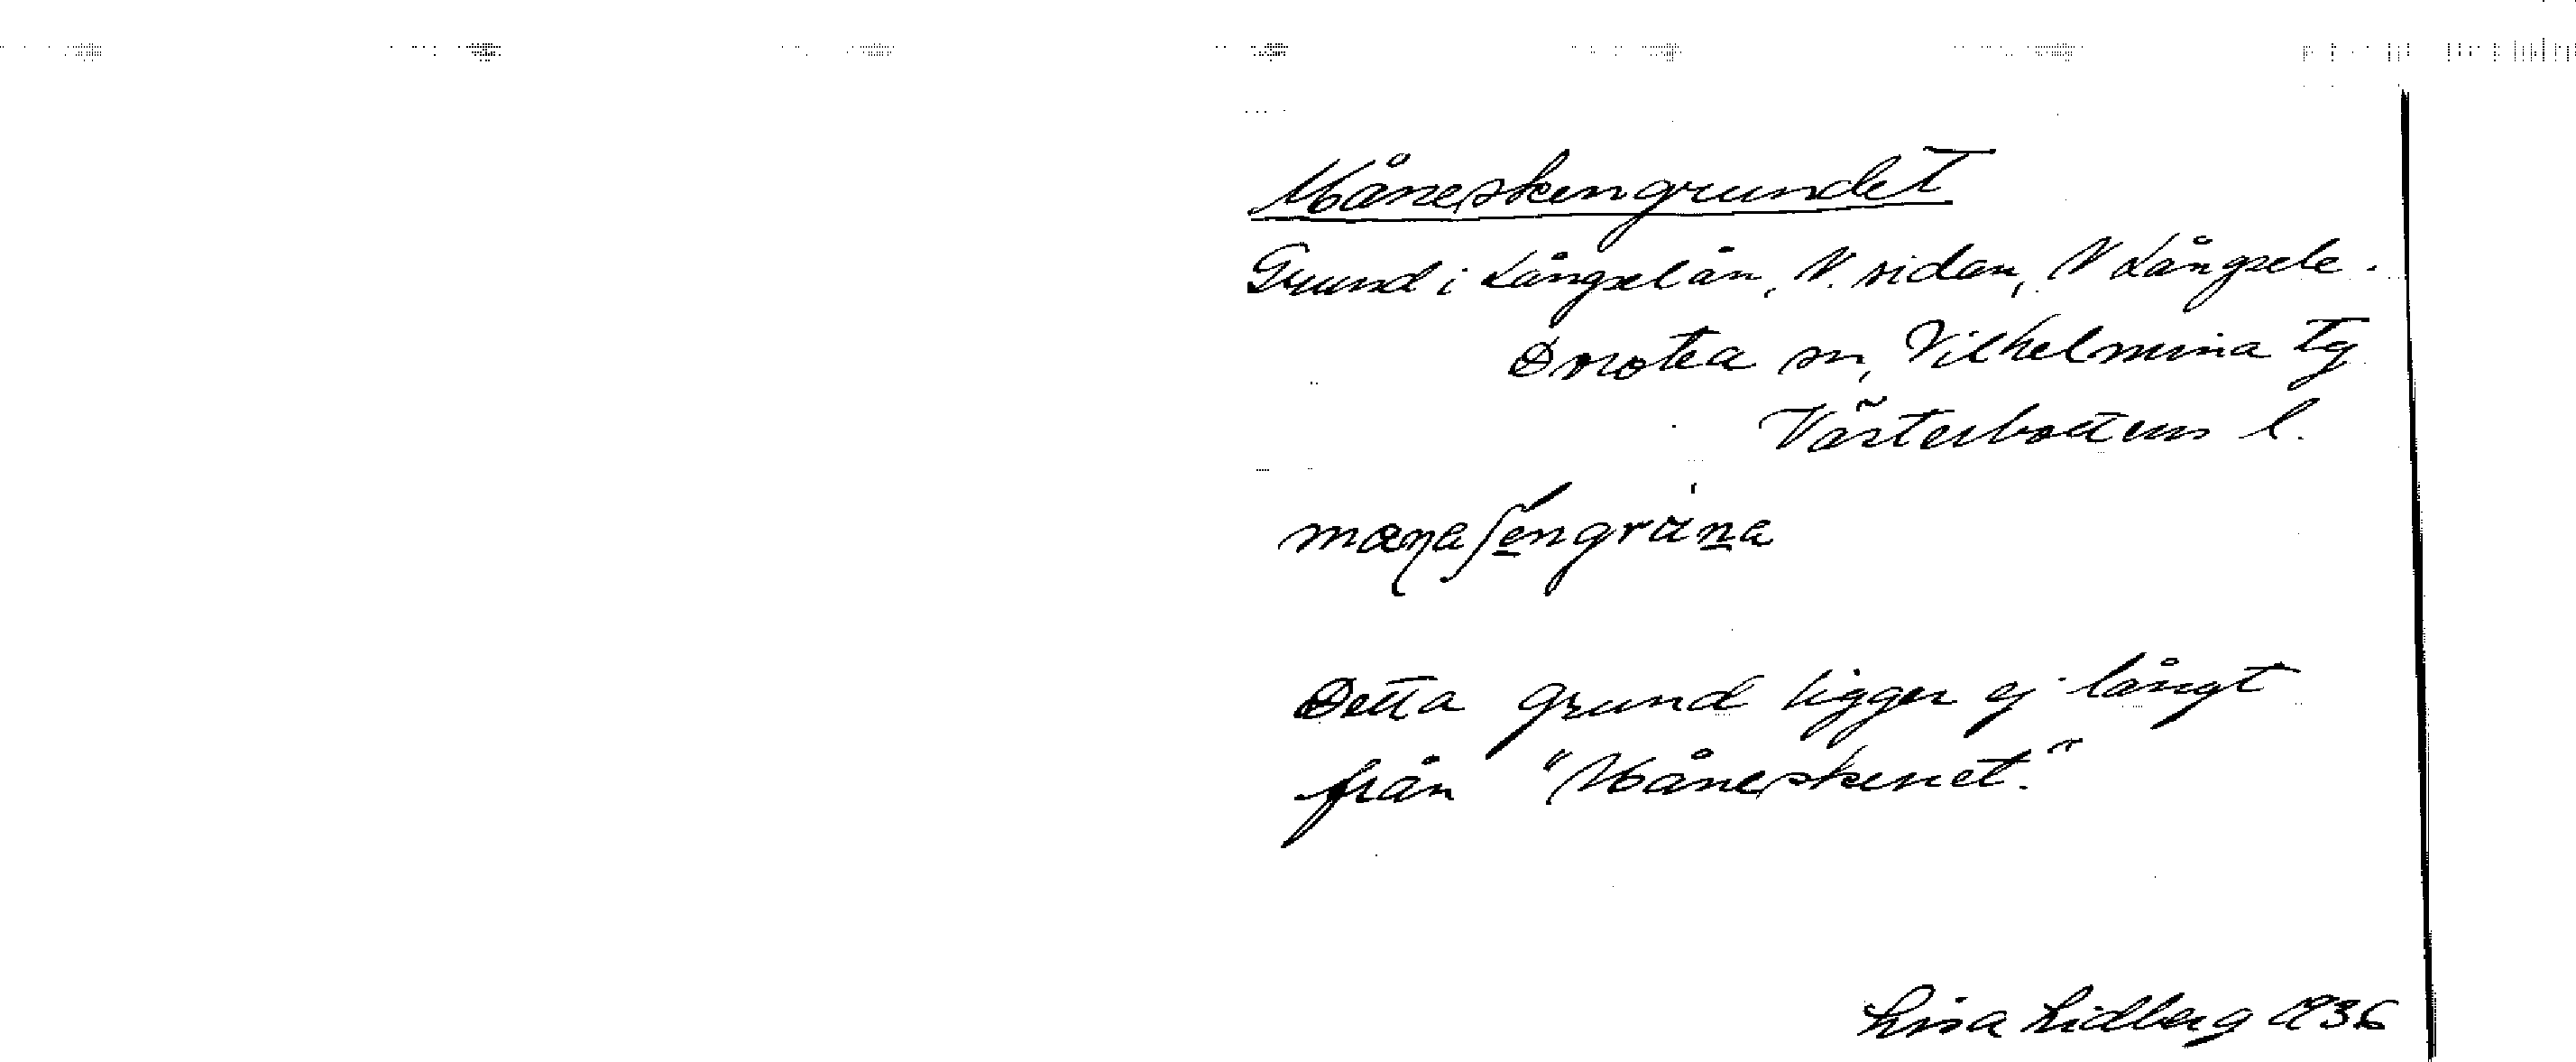 Måneskengrundet
Grund i Långselån, N. sidan, N Långsele.
Dorotea sn, Vilhelmina tg
Västerbottens l.
Detta grund ligger ej långt
från "Måneskenet."
Lisa Lidberg 1936